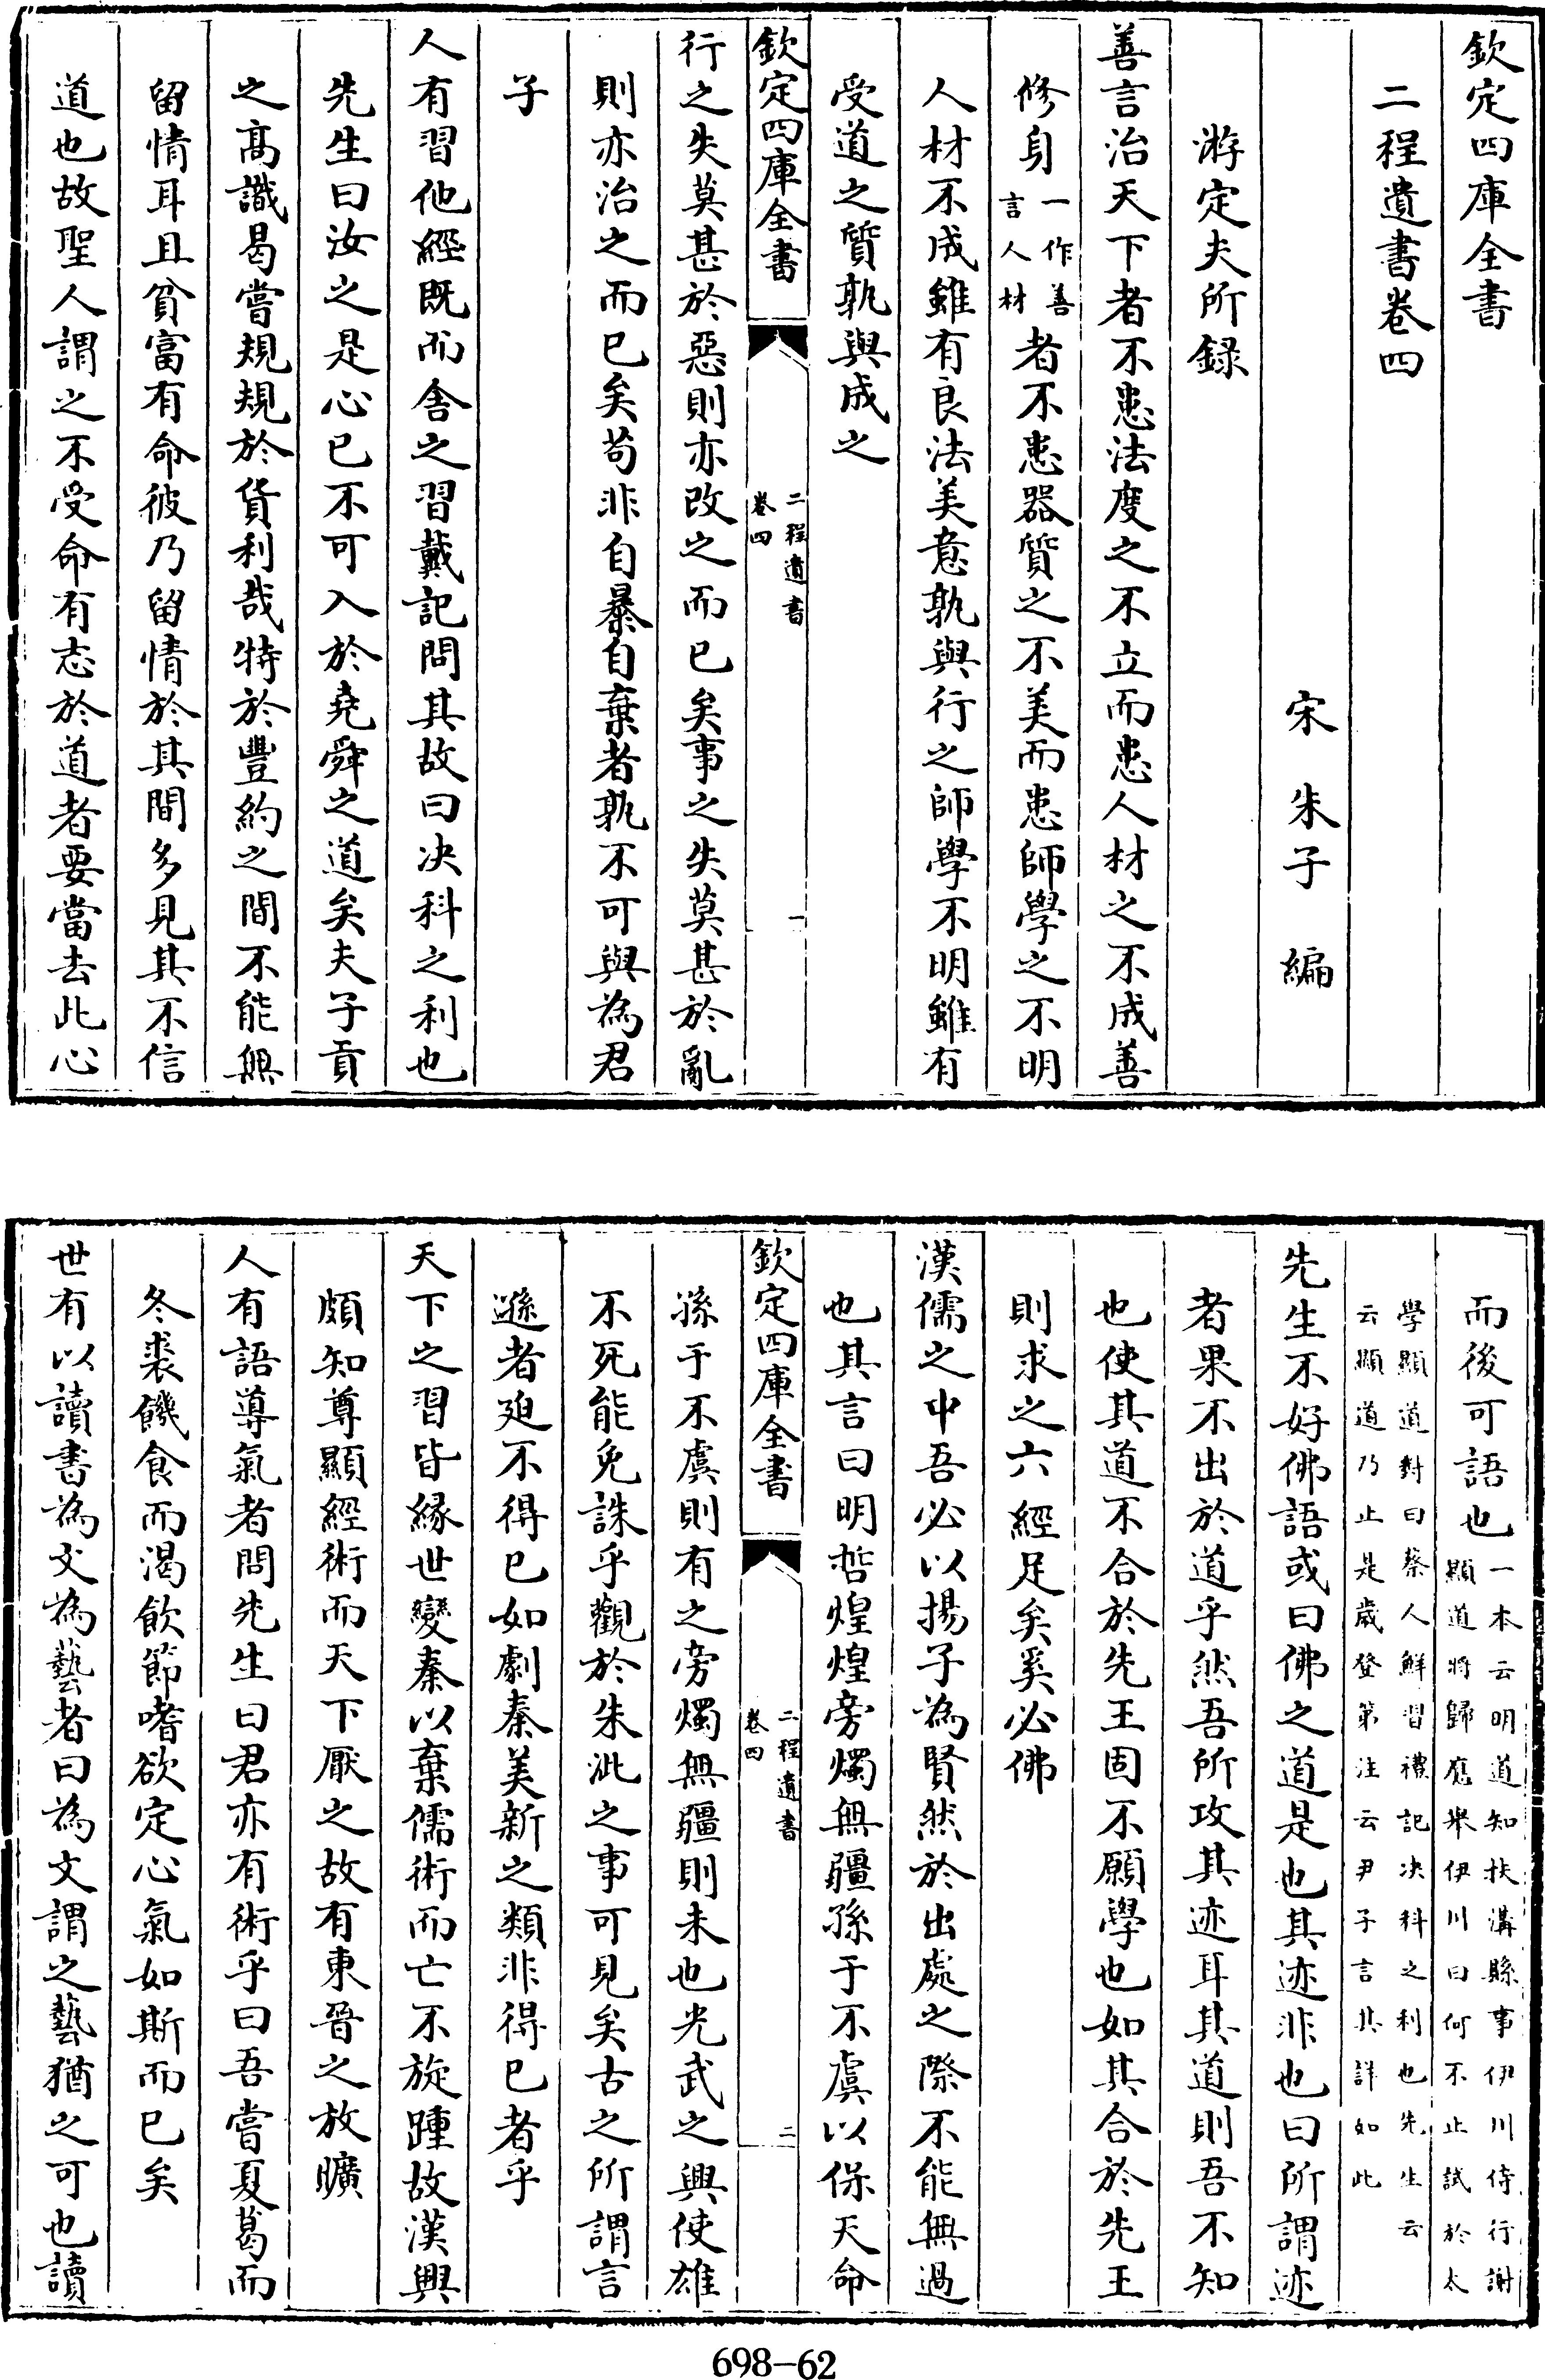 欽定四庫全書
二程遺書卷四
宋　朱子　編
游定夫所録
善言治天下者不患法度之不立而患人材之不成善
修身一作善言人材者不患器質之不美而患師學之不明
人材不成雖有良法美意孰與行之師學不明雖有
受道之質孰與成之
欽定四庫全書
二程遺書
卷四
一
行之失莫甚於惡則亦改之而已矣事之失莫甚於亂
則亦治之而已矣苟非自暴自棄者孰不可與為君
子
人有習他經既而舍之習戴記問其故曰决科之利也
先生曰汝之是心已不可入於堯舜之道矣夫子貢
之高識曷嘗規規於貨利哉特於豐約之間不能無
留情耳且貧富有命彼乃留情於其間多見其不信
道也故聖人謂之不受命有志於道者要當去此心
而後可語也一本云明道知扶溝縣事伊川侍行謝
顯道將歸應舉伊川曰何不止試於太
學顯道對曰蔡人鮮習禮記决科之利也先生云
云顯道乃止是歲登第注云尹子言其詳如此
先生不好佛語或曰佛之道是也其迹非也曰所謂迹
者果不出於道乎然吾所攻其迹耳其道則吾不知
也使其道不合於先王固不願學也如其合於先王
則求之六經足矣奚必佛
漢儒之中吾必以揚子為賢然於出處之際不能無過
也其言曰明哲煌煌旁燭無疆孫于不虞以保天命
欽定四庫全書
二程遺書
卷四
二
孫于不虞則有之旁燭無疆則未也光武之興使雄
不死能免誅乎觀於朱泚之事可見矣古之所謂言
遜者廹不得已如劇秦美新之類非得已者乎
天下之習皆緣世變秦以棄儒術而亡不旋踵故漢興
頗知尊顯經術而天下厭之故有東晉之放曠
人有語導氣者問先生曰君亦有術乎曰吾嘗夏葛而
冬裘饑食而渴飲節嗜欲定心氣如斯而已矣
世有以讀書為文為藝者曰為文謂之藝猶之可也讀
698-62